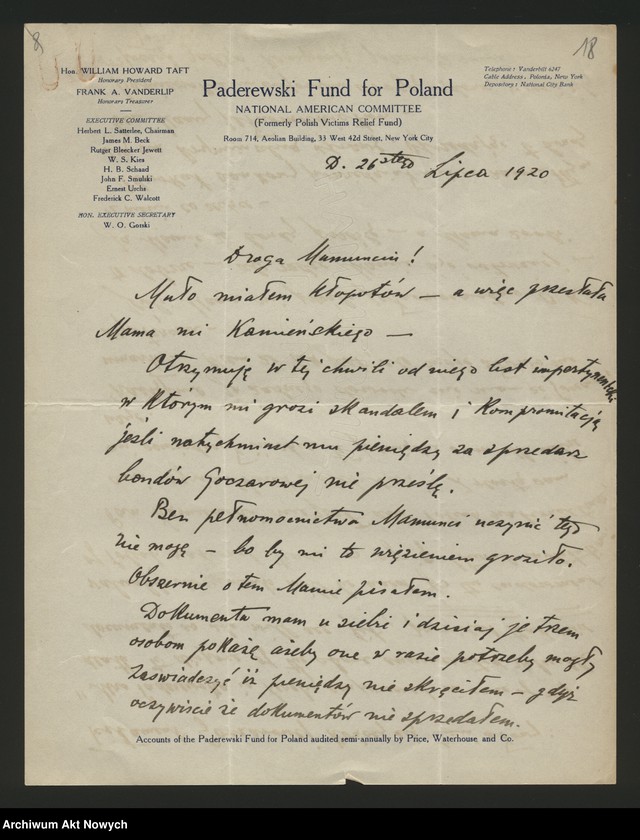 8
18
Hon. WILLIAM HOWARD TAFT
Honorary President
FRANK A. VANDERLIP
Honorary Treasurer
EXECUTIVE COMMITTEE
Herbert L. Satterlee, Chairman
James M. Beck
Rutger Bleecker Jewett
W. S. Kies
H. B. Schaad
John F. Smulski
Ernest Urchs
Frederic C. Walcott
HON. EXECUTIVE SECRETARY
W. O. Gorski
Paderewski Fund for Poland
NATIONAL AMERICAN COMMITTEE
(Formerly Polish Victims Relief Fund)
Room 714, Aeolian Building, 33 West 42d Street, New York City
Telephone: Vanderbilt 6247
Cable Address, Polonia, New York
Depository: National City Bank
D. 26stego Lipca 1920
Droga Mamunciu!
Mało miałem kłopotów — a więc przesłała
Mama mi Kamieńskiego —
Otrzymuję w tej chwili od niego list impertynencki
w którym mi grozi skandalem i kompromitacją
jeśli natychmiast mu pieniędzy za sprzedarz
bondów Goczarowej nie prześlę.
Bez pełnomocnictwa Mamunci uczynić tego
nie mogę — bo by mi to więzieniem groziło.
Obszernie o tem Mamie pisałem.
Dokumenta mam u siebie i dzisiaj je trzem
osobom pokażę ażeby one w razie potrzeby mogły
zaświadczyć iż pieniędzy nie skręciłem — gdyż
oczywiście że dokumentów nie sprzedałem.
Accounts of the Paderewski Fund for Poland audited semi-annually by Price, Waterhouse and Co.
Archiwum Akt Nowych